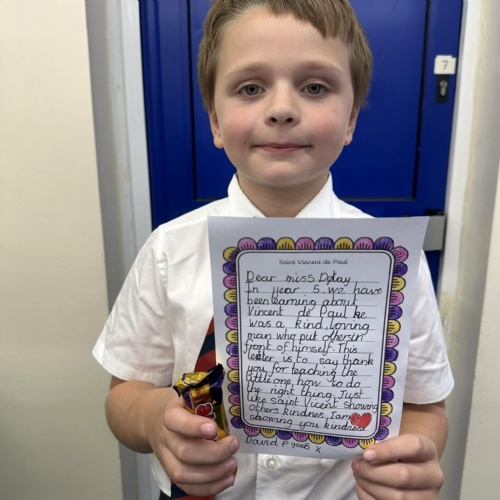 7
Saint Vincent de Paul
Dear miss Delay
in year 5 we have
been learning about
Vincent de Paul he
was a kind, loving
man who put others in
front of himself. This
letter is to say thank
you for teaching the
little one how to do
the right thing Just
like Saint Vicent showing
others kindnes. I am
showing you kindness
David P year 5 x